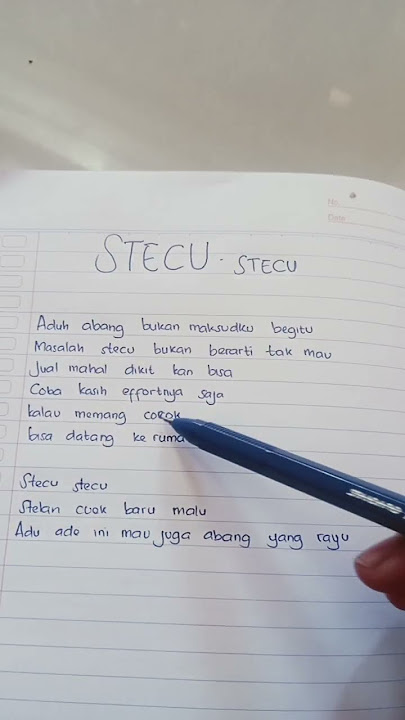 No.
Date
STECU - STECU
Aduh abang bukan maksudku begitu
Masalah stecu bukan berarti tak mau
Jual mahal dikit kan bisa
Coba kasih effortnya saja
kalau memang cocok
bisa datang ke
Stecu stecu
Stelan cuek baru malu
Adu ade ini mau juga abang yang rayu